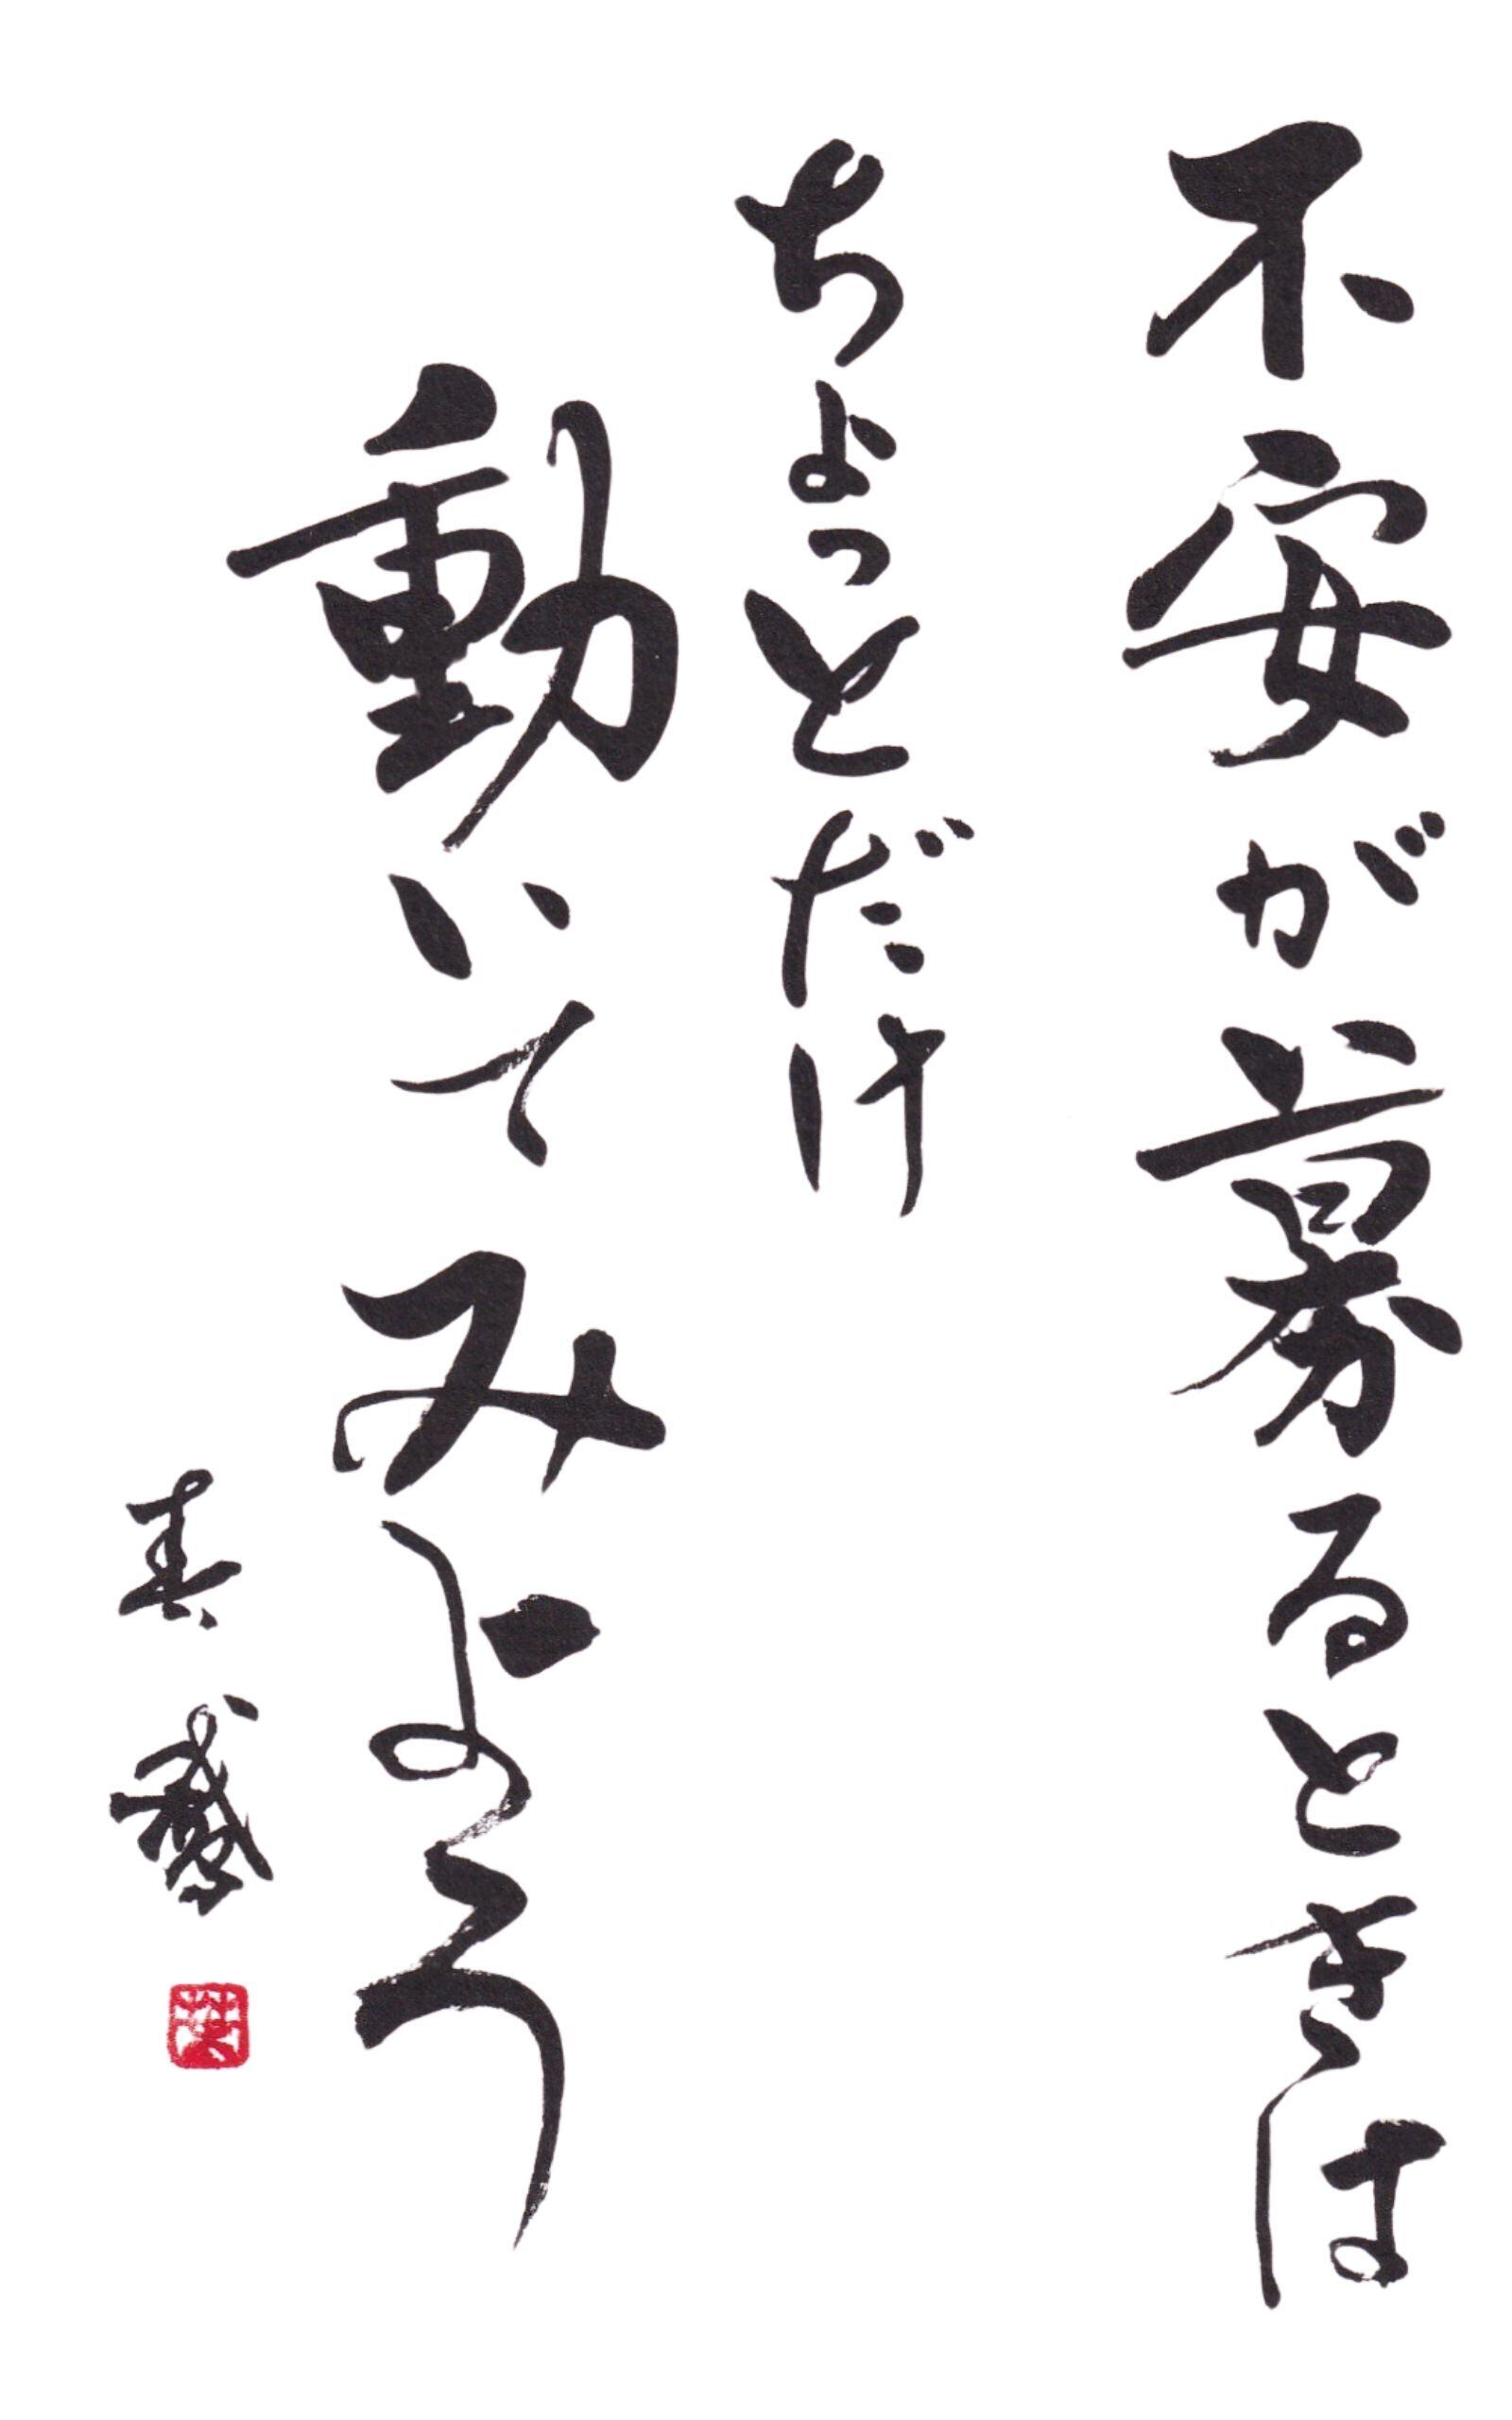 不安が募るときは
ちょっとだけ
動いてみよう